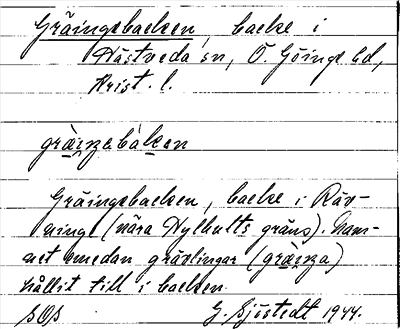 Gräingsbacken, backe i
Hästveda sn, Ö. Göinge hd,
Krist. l.
gräi̯ŋzabàken
Gräingsbacken, backe i Räv-
ninge (nära Hylhults gräns). Nam-
net emedan grävlingar (gräi̯ŋza)
hållit till i backen.
SOS G. Sjöstedt 1944.